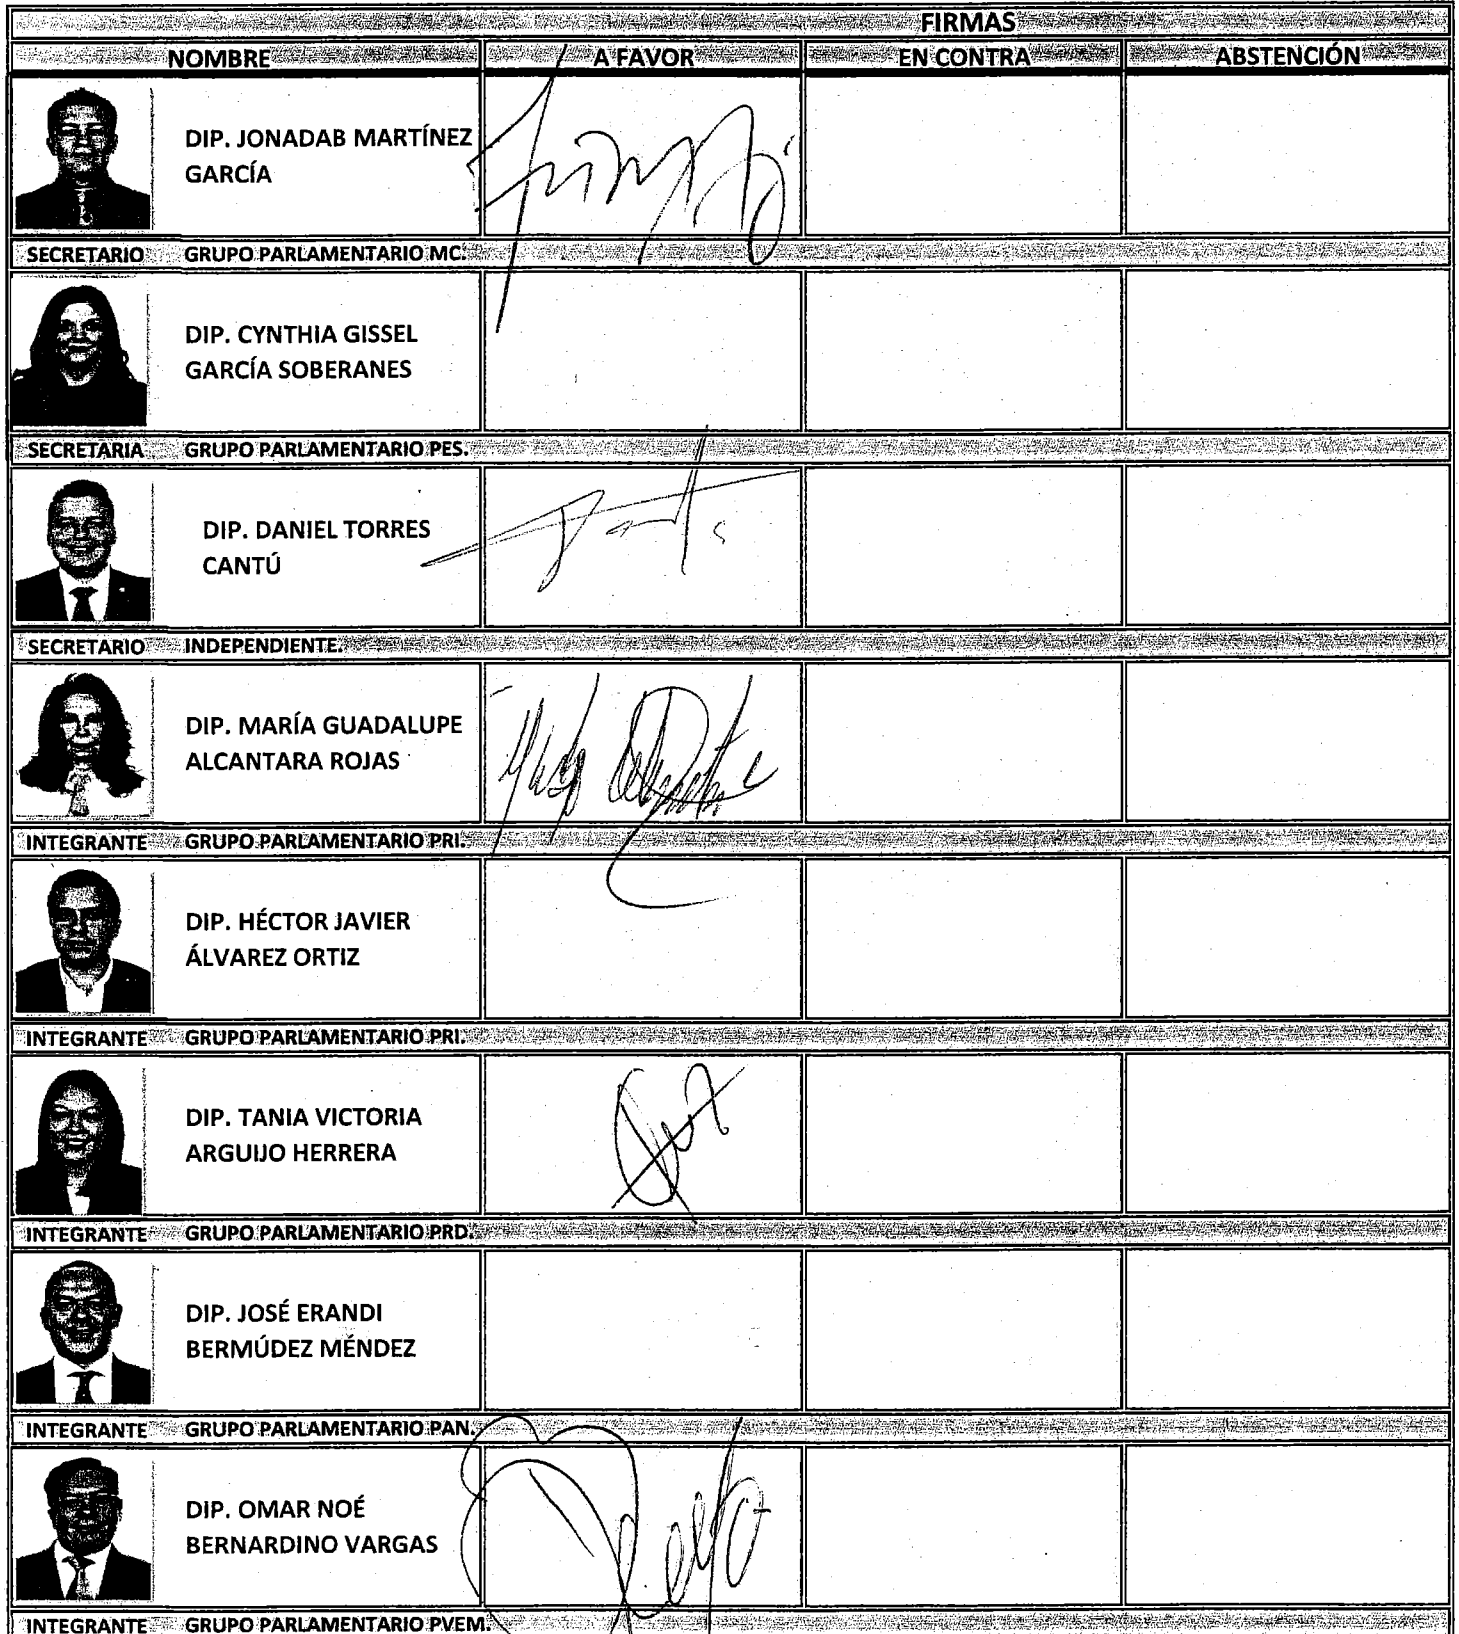 FIRMAS
NOMBRE A FAVOR EN CONTRA ABSTENCIÓN
DIP. JONADAB MARTÍNEZ
GARCÍA
SECRETARIO GRUPO PARLAMENTARIO MC.
DIP. CYNTHIA GISSEL
GARCÍA SOBERANES
SECRETARIA GRUPO PARLAMENTARIO PES.
DIP. DANIEL TORRES
CANTÚ
SECRETARIO INDEPENDIENTE.
DIP. MARÍA GUADALUPE
ALCANTARA ROJAS
INTEGRANTE GRUPO PARLAMENTARIO PRI.
DIP. HÉCTOR JAVIER
ÁLVAREZ ORTIZ
INTEGRANTE GRUPO PARLAMENTARIO PRI.
DIP. TANIA VICTORIA
ARGUIJO HERRERA
INTEGRANTE GRUPO PARLAMENTARIO PRD.
DIP. JOSÉ ERANDI
BERMÚDEZ MÉNDEZ
INTEGRANTE GRUPO PARLAMENTARIO PAN.
DIP. OMAR NOÉ
BERNARDINO VARGAS
INTEGRANTE GRUPO PARLAMENTARIO PVEM.